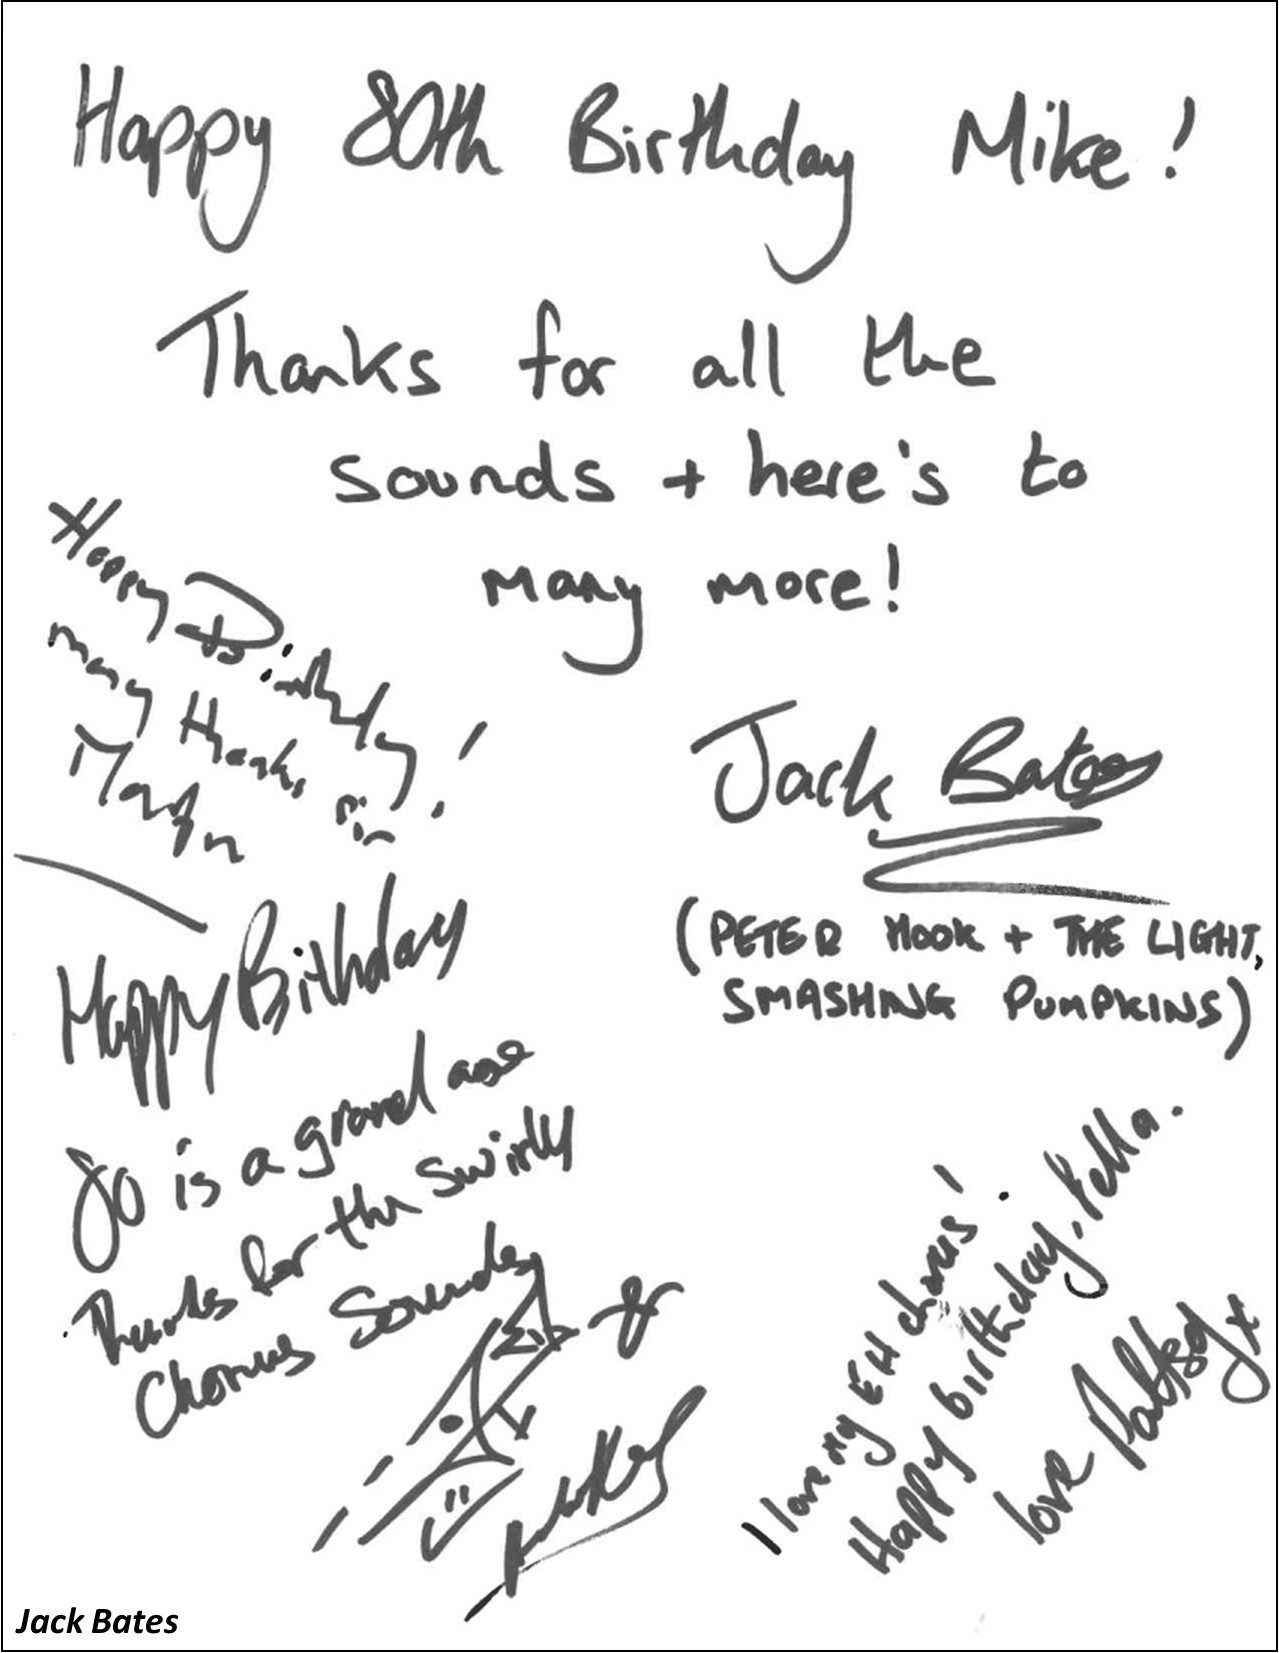 Happy 80th Birthday Mike!
Thanks for all the
sounds + here's to
many more!
Jack Bates
(PETER HOOK + THE LIGHT,
SMASHING PUMPKINS)
Happy Birthday!
many thanks
Martyn
Happy Birthday
80 is a grand age
Thanks for the swirly
Chorus Sounds
I love my EH chorus!
Happy birthday, Fella.
love Pottsy x
Jack Bates